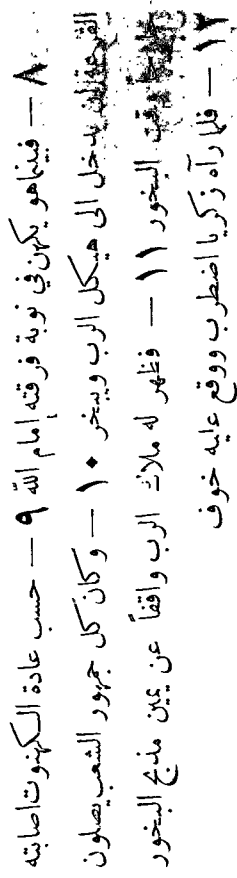 ٨ — فبينما هو يكهن في نوبة فرقته إمام الله ٩ — حسب عادة الكهنوت اصابته
القرعة ان يدخل الى هيكل الرب ويبخر ١٠ — وكان كل جمهور الشعب يصلون
وقت البخور ١١ — فظهر له ملاك الرب واقفاً عن يمين مذبح البخور
١٢ — فلما رآه زكريا اضطرب ووقع عليه خوف